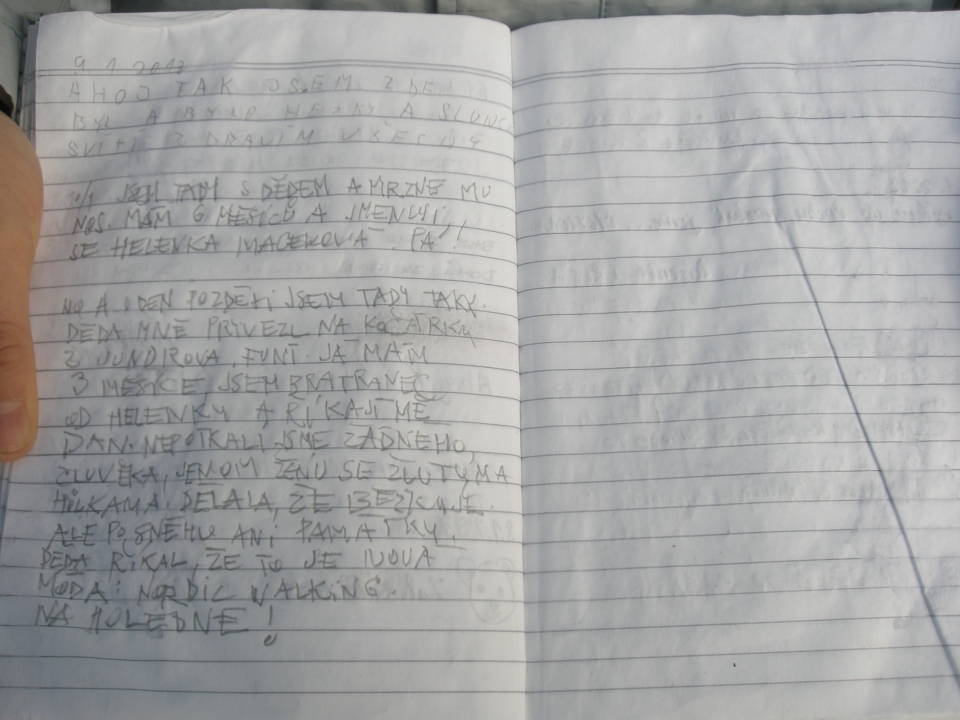 9 1 2013
AHOJ TAK JSEM ZDE
BYL A BYLO HEZKY A SLUNC
SVÍTÍ ZDRAVÍM VŠECHNY
10/1 JSEM TAM S DĚDEM A MRZNE MU
NOS. MÁM 6 MĚSÍCŮ A JMENUJI
SE HELENKA MACEKOVÁ PA!!
NO A DEN POZDĚJI JSEM TADY TAKY.
DĚDA MNĚ PŘIVEZL NA KOČÁRKU
Z JUNDIROVA, FUNÍ. JÁ MÁM
3 MĚSÝCE JSEM BRATRANEC
OD HELENKY A ŘÍKAJÍ MĚ
DAN. NEPOTKALI JSME ŽÁDNÉHO,
ČLOVĚKA, JENOM ŽENU SE ŽLUTÝMA
HŮLKAMA. DĚLALA, ŽE BĚŽKUJE.
ALE PO SNĚHU ANI PAMÁTKY.
DĚDA ŘÍKAL, ŽE TO JE NOVÁ
MÓDA: NORDIC WALKING.
NA HOLEDNE!